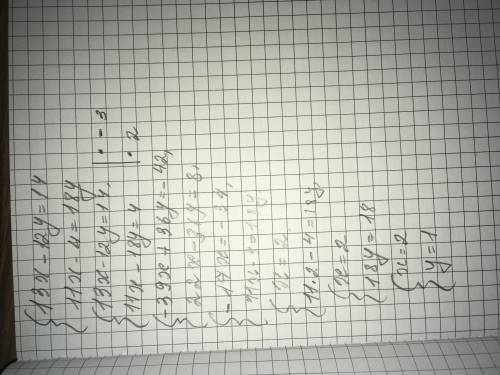 {13x - 12y = 14
11x - 4 = 18y
{13x - 12y = 14, | · - 3
11x - 18y = 4 | · 2
{-39x + 36y = -42,
22x - 36y = 8,
{-17x = -34,
11x - 4 = 18y
{x = 2
11·2 - 4 = 18y
{x = 2
18y = 18
{x = 2
y = 1